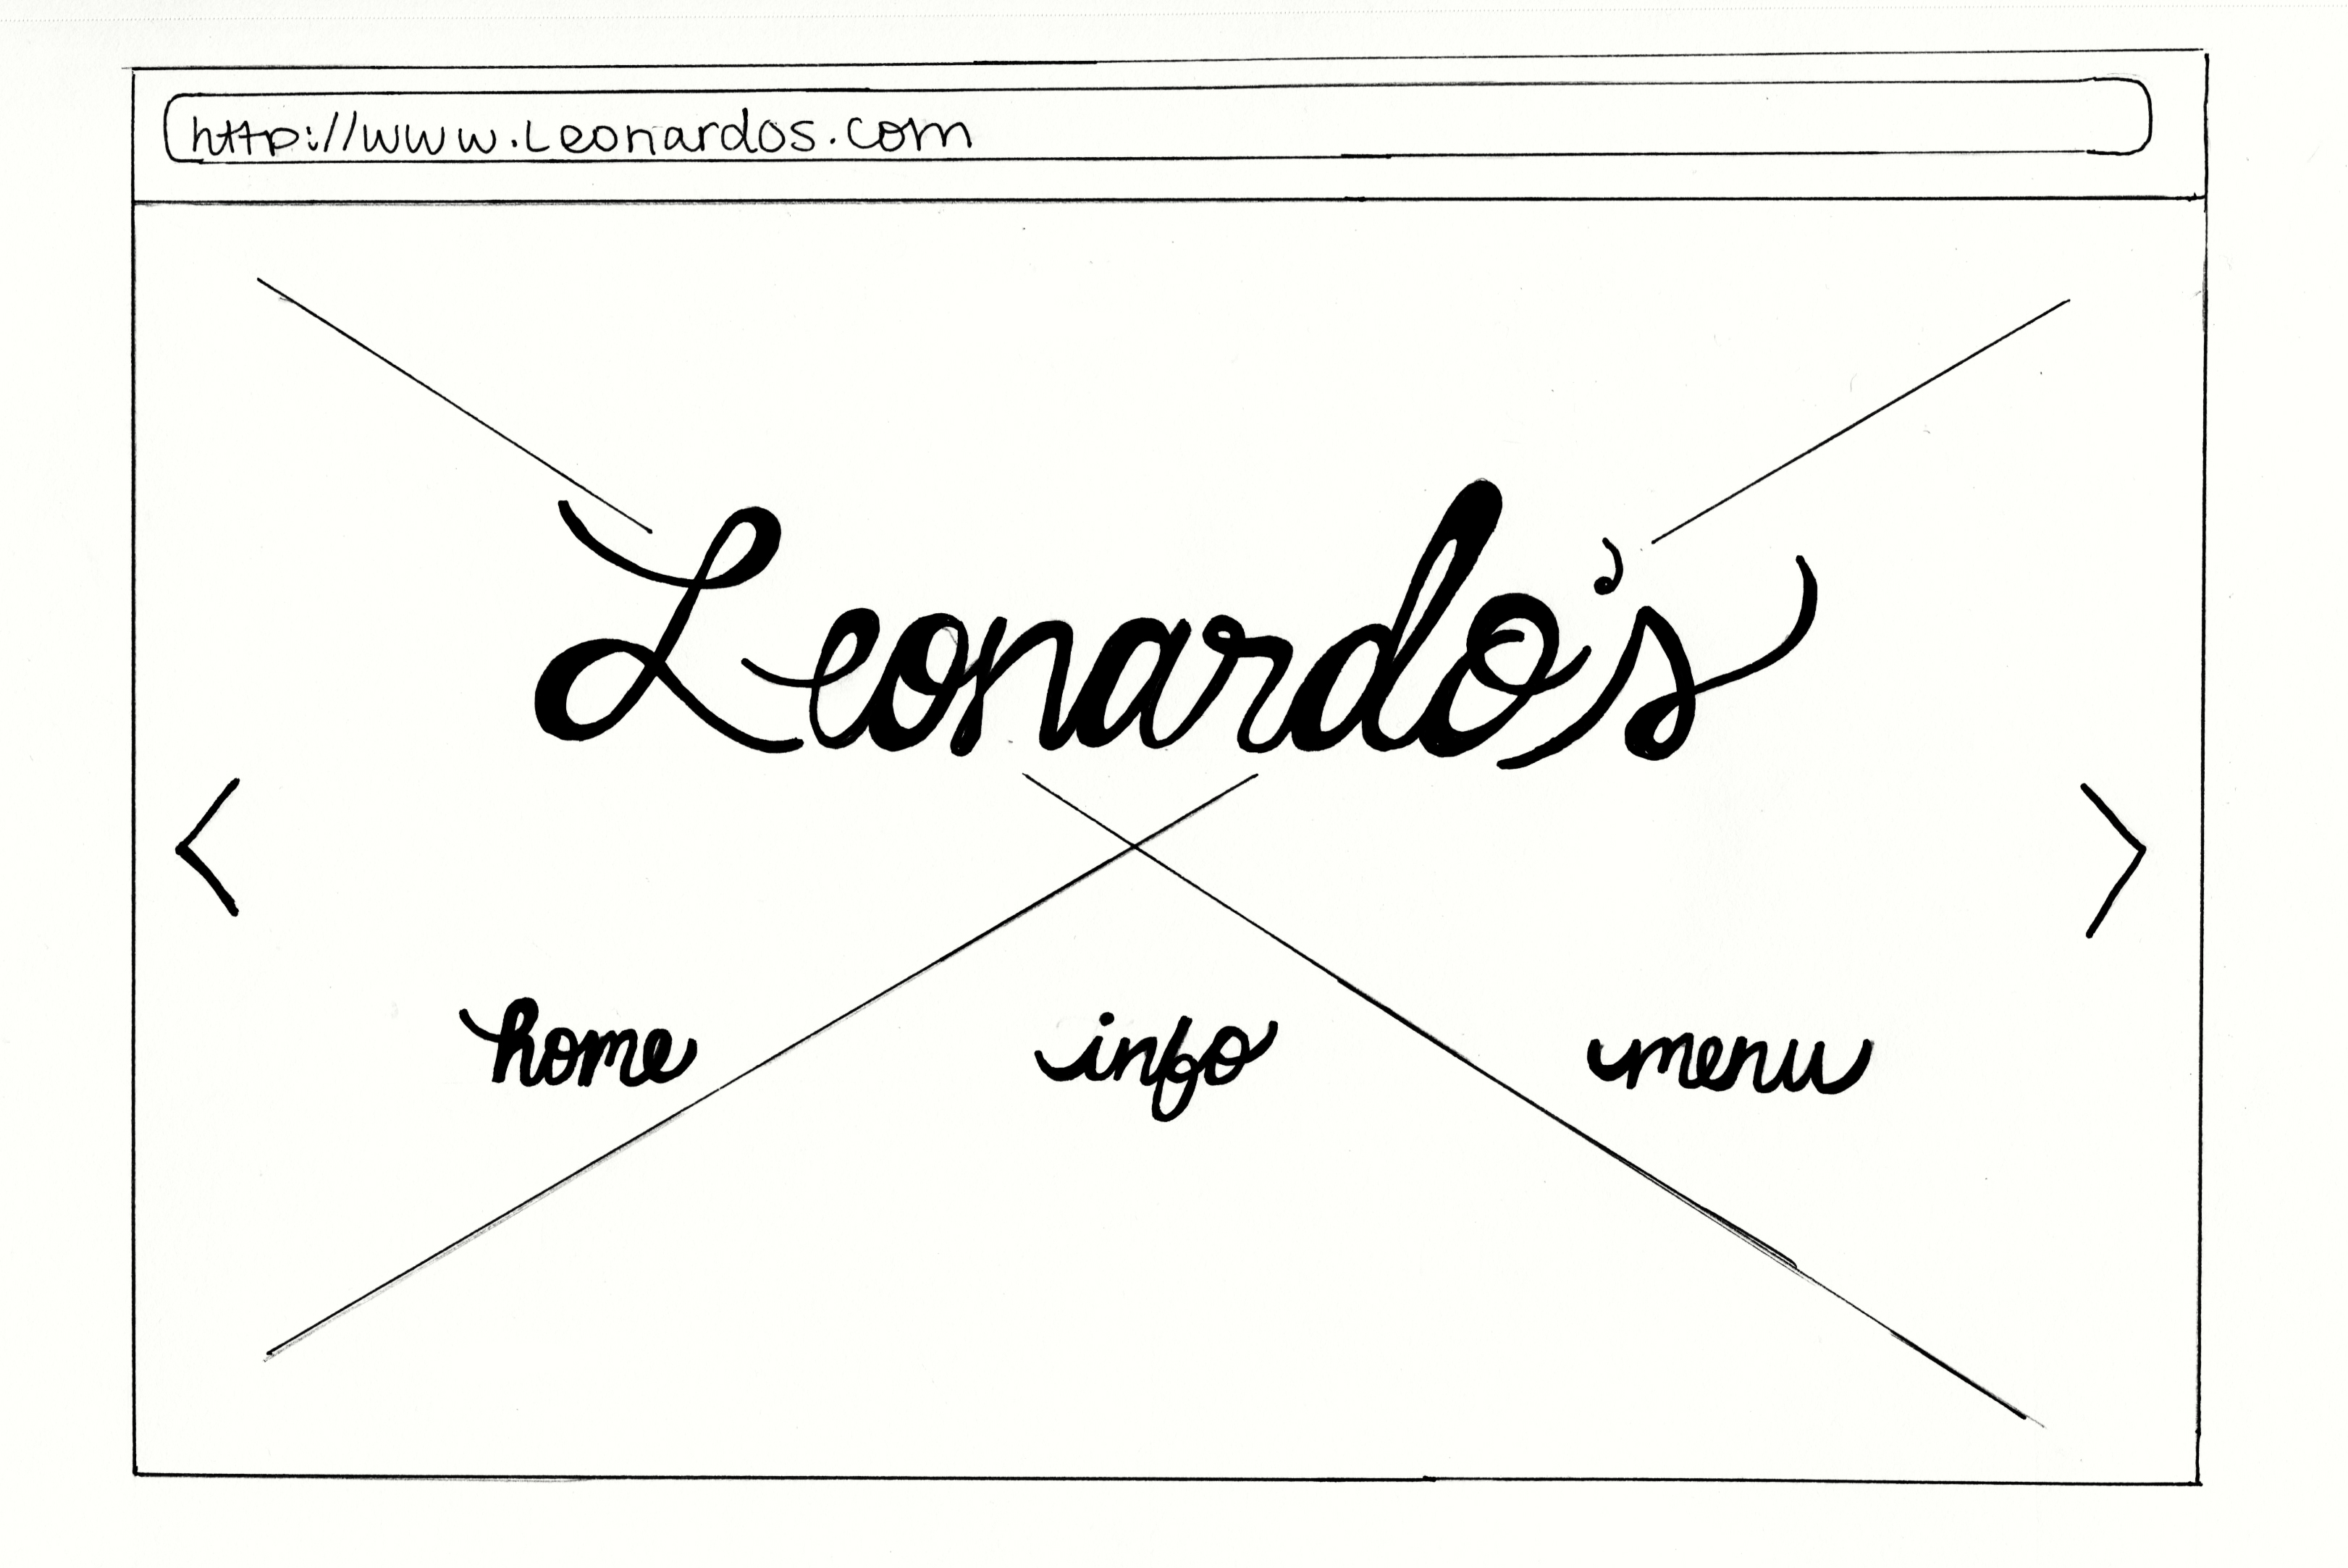 http://www.Leonardos.com
Leonardo's
< >
home info menu